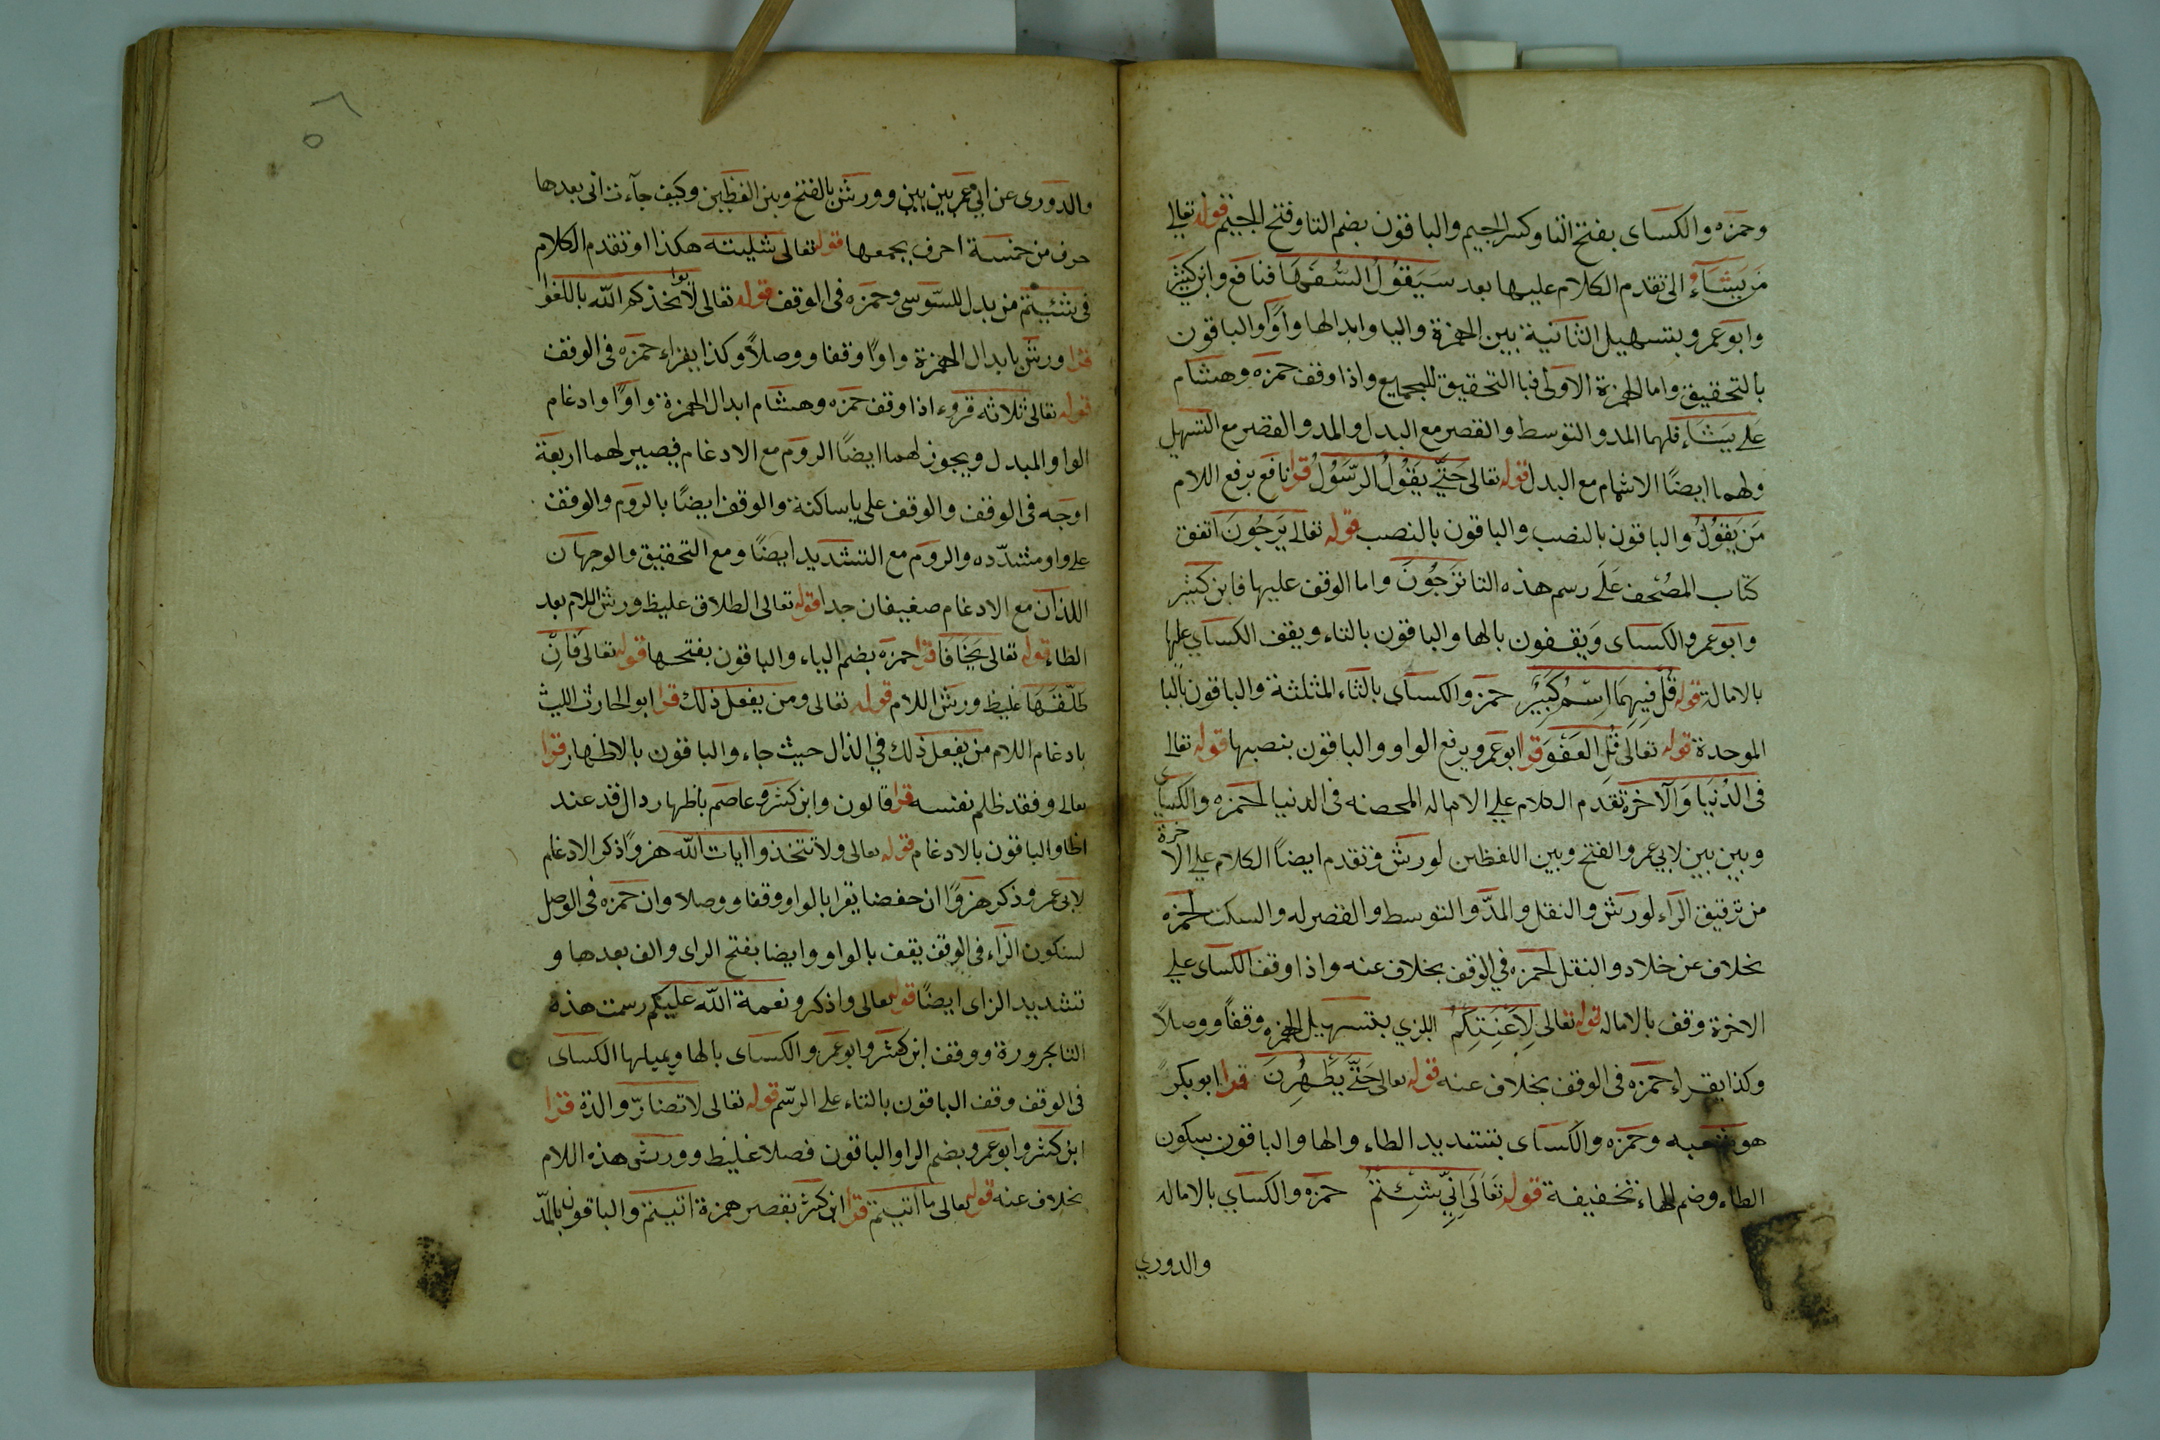 وحمزه والكساى بفتح التا وكسر الجيم والباقون بضم التا وفتح الجيم قوله تعالى
من يشاء الى تقدم الكلام عليها بعد سَيَقُولُ السُّفَهَا فنافع وابن كثير
وابو عمرو بتسهيل الثانية بين الهمزة واليا وابدالها واوًا والباقون
بالتحقيق واما الهمزة الاولى فبا التحقيق للجميع واذا وقف حمزه وهشام
على يشاء فلهما المد والتوسط والقصر مع البدل والمد والقصر مع التسهيل
ولهما ايضًا الاشمام مع البدل قوله تعالى حَتَّى يَقُولُ الرَّسُولُ قرا نافع برفع اللام
مَن يَقُولُ والباقون بالنصب والباقون بالنصب قوله تعالى يَرجُونَ اتفق
كتاب المصحف عَلَى رسم هذه التا تَرجُونَ واما الوقف عليها فابن كثير
وابو عمرو والكساى وَيقفون بالها والباقون بالتاء ويقف الكساي عليها
بالامالة قوله قُل فِيهِمَا اِسْمٌ كَبِيرٌ حمزه والكساى بالثاء المثلثة والباقون بالبا
الموحدة قوله تعَالى قُل العَفوَ قرا ابو عمرو برفع الواو والباقون بنصبها قوله تعالى
فى الدُنيَا وَالآخرة تقدم الكلام على الاماله المحضه فى الدنيا لحمزه والكساى
وبين بين لابى عمرو والفتح وبين اللفظين لورش وتقدم ايضًا الكلام على الاخرة
من ترقيق الراء لورش والنقل والمدّ والتوسط والقصر له والسكت لحمزه
بخلاف عن خلاد والنقل لحمزه في الوقف بخلاف عنه واذا وقف الكساى على
الاخرة وقف بالاماله قوله تعالى لاَعْنَتَكُمْ البزي بتسهيل الهمزه وقفًا ووصلاً
وكذا يقراء حمزه فى الوقف بخلاف عنه قوله تعالى حَتَّى يَطَّهَّرنَ قرا ابو بكر
هو شعبه وحمزه والكساى بتشديد الطاء والها والباقون بسكون
الطاء وضم الهاء تخفيفة قوله تَعَالَى اَنِّى شِئتُمْ حمزه والكساي بالاماله
والدوري
والدورى عن ابي عمر بين بين وورش بالفتح وبين الفظين وكيف جآءت انى بعدها
حرف من خمسة احرف يجمعها قوله تعالى شليته هكذا او تقدم الكلام
فى شئتم من بدل للسّوسى وحمزه فى الوقف قوله تعالى لا يواخذكم الله باللغوا
قرا ورش بابدال الهمزة واوًا وقفا ووصلاً وكذا يقراء حمزه فى الوقف
قوله تعالى ثلاثه قروء اذا وقف حمزه وهشام ابدال الهمزة واوًا وادغام
الواو المبدل ويجوز لهما ايضًا الروم مع الادغام فيصير لهما اربعة
اوجه فى الوقف والوقف على ياساكنة والوقف ايضًا بالروم والوقف
على واو مشدّده والروم مع التشديد ايضًا ومع التحقيق والوجهان
اللذان مع الادغام ضعيفان جدا قوله تعالى الطلاق غليظ ورش اللام بعد
الطاء قوله تعالى يَخَافَا قرا حمزه بضم الياء والباقون بفتحها قوله تعالى فَاِنْ
طَلّقهَا غليظ ورش اللام قوله تعالى ومن يفعل ذلك قرا ابو الحارث الليث
بادغام اللام من يفعل ذلك في الذال حيث جاء والباقون بالاظهار قرا
تعالى وفقد ظلم نفسه قرا قالون وابن كثير وعاصم باظهار دال قد عند
الظا والباقون بالادغام قوله تعالى ولا تتخذوا ايات الله هزوًا ذكر الادغام
لابى عمرو ذكر هزوًا ان حفصا يقرا بالواو وقفا ووصلا وان حمزه فى الوصل
لسكون الزاء فى الوقف يقف بالواو وايضا بفتح الزاى والف بعدها و
تشديد الزاى ايضًا قوله تعالى واذكرو نعمة الله عليكم رسمت هذه
التا مجرورة ووقف ابن كثير وابو عمر والكساى بالها ويميلها الكساى
فى الوقف وقف الباقون بالتاء على الرّسم قوله تعالى لا تضارّ والدة قرا
ابن كثير وابو عمرو بضم الرا والباقون فصلا غليظ وورش هذه اللام
بخلاف عنه قوله تعالى ما اتيتم قرا ابن كثير بقصر همزة اتيتم والباقون بالمدّ